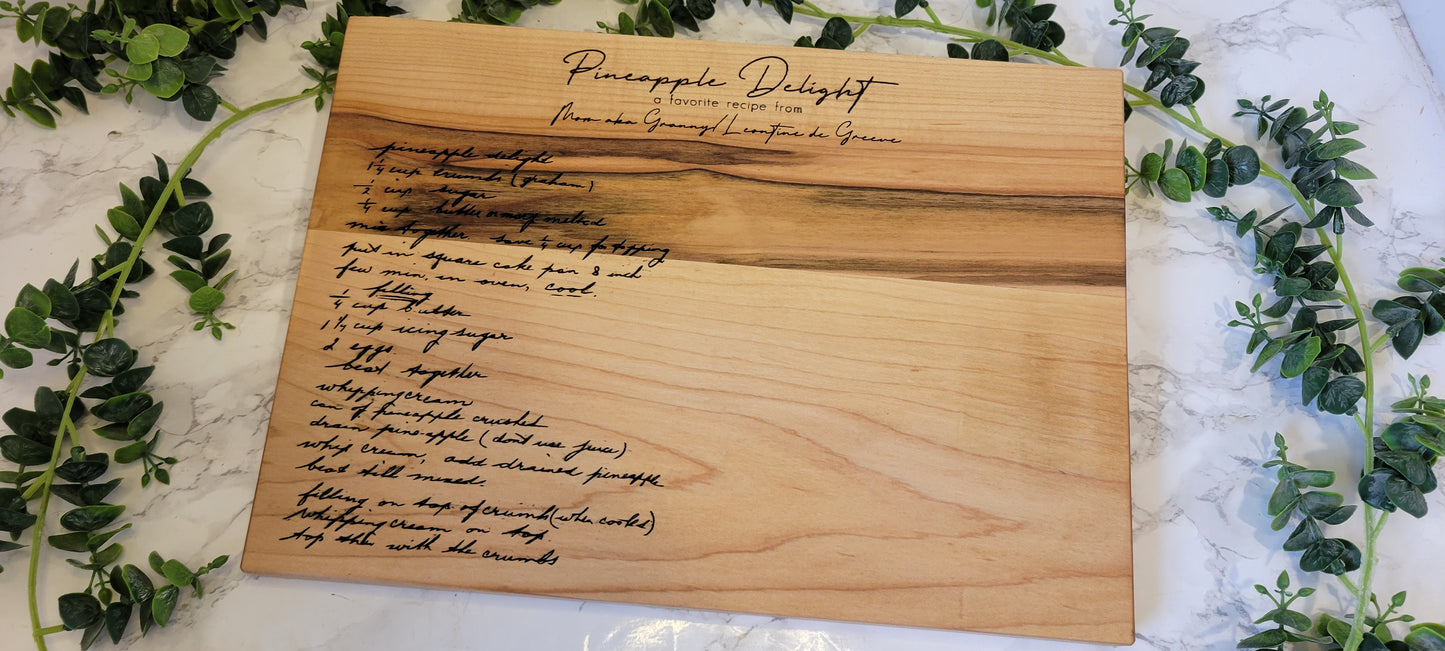 Pineapple Delight
a favorite recipe from
Mom aka Granny/Leontine de Greeve
pineapple delight
1 1/4 cup crumbs (graham)
1/2 cup sugar
1/4 cup butter or marg melted
mix together. save 1/4 cup for topping
put in square cake pan 8 inch
few min. in oven, cool.
filling
1/4 cup butter
1 1/4 cup icing sugar
2 eggs.
beat together
whipping cream
can of pineapple crushed
drain pine-apple (dont use juice)
whip cream, add drained pineapple
beat till mixed.
filling on top of crumb (when cooled)
whipping cream on top.
top then with the crumbs